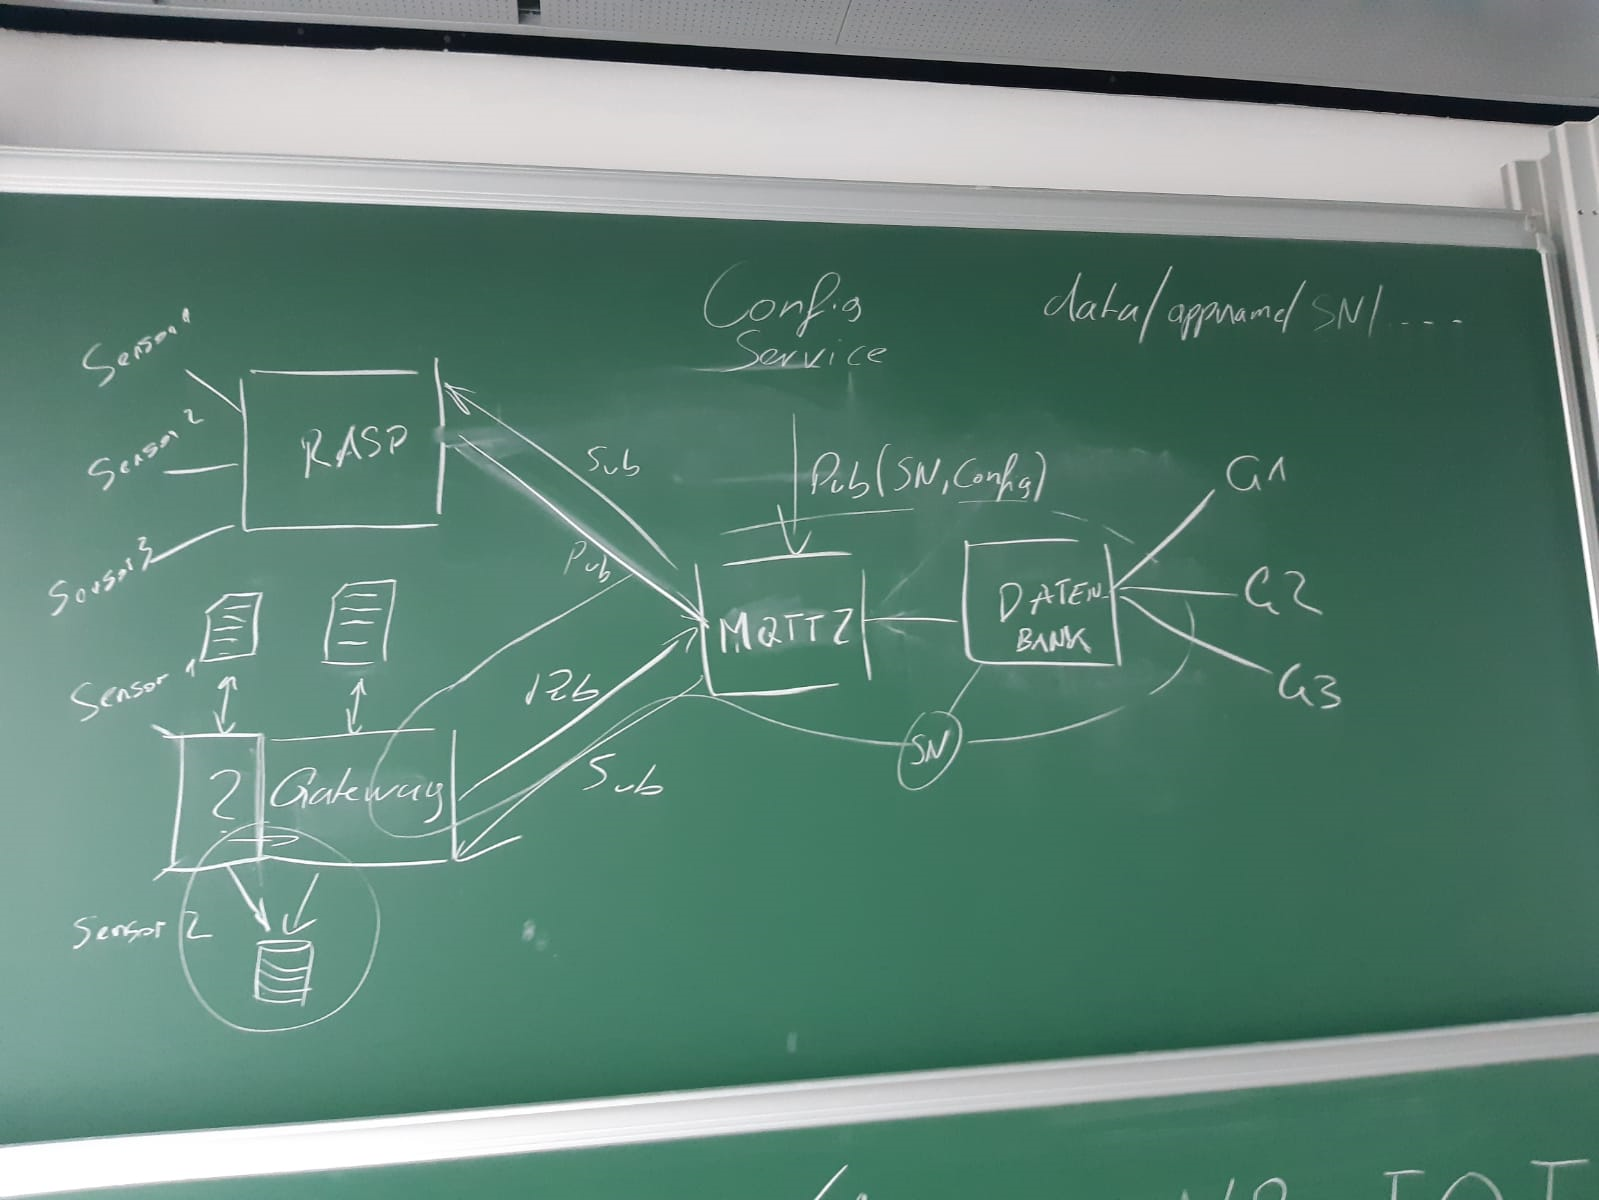 Config
Service
data/appname/SN/....
Sensor 1
Sensor 2
Sensor 3
RASP
Sub
Pub
Pub(SN, Config)
MQTTZ
DATEN
BANK
G1
G2
G3
SN
Sensor 1
Sub
?
Gateway
Sensor 2
IOT